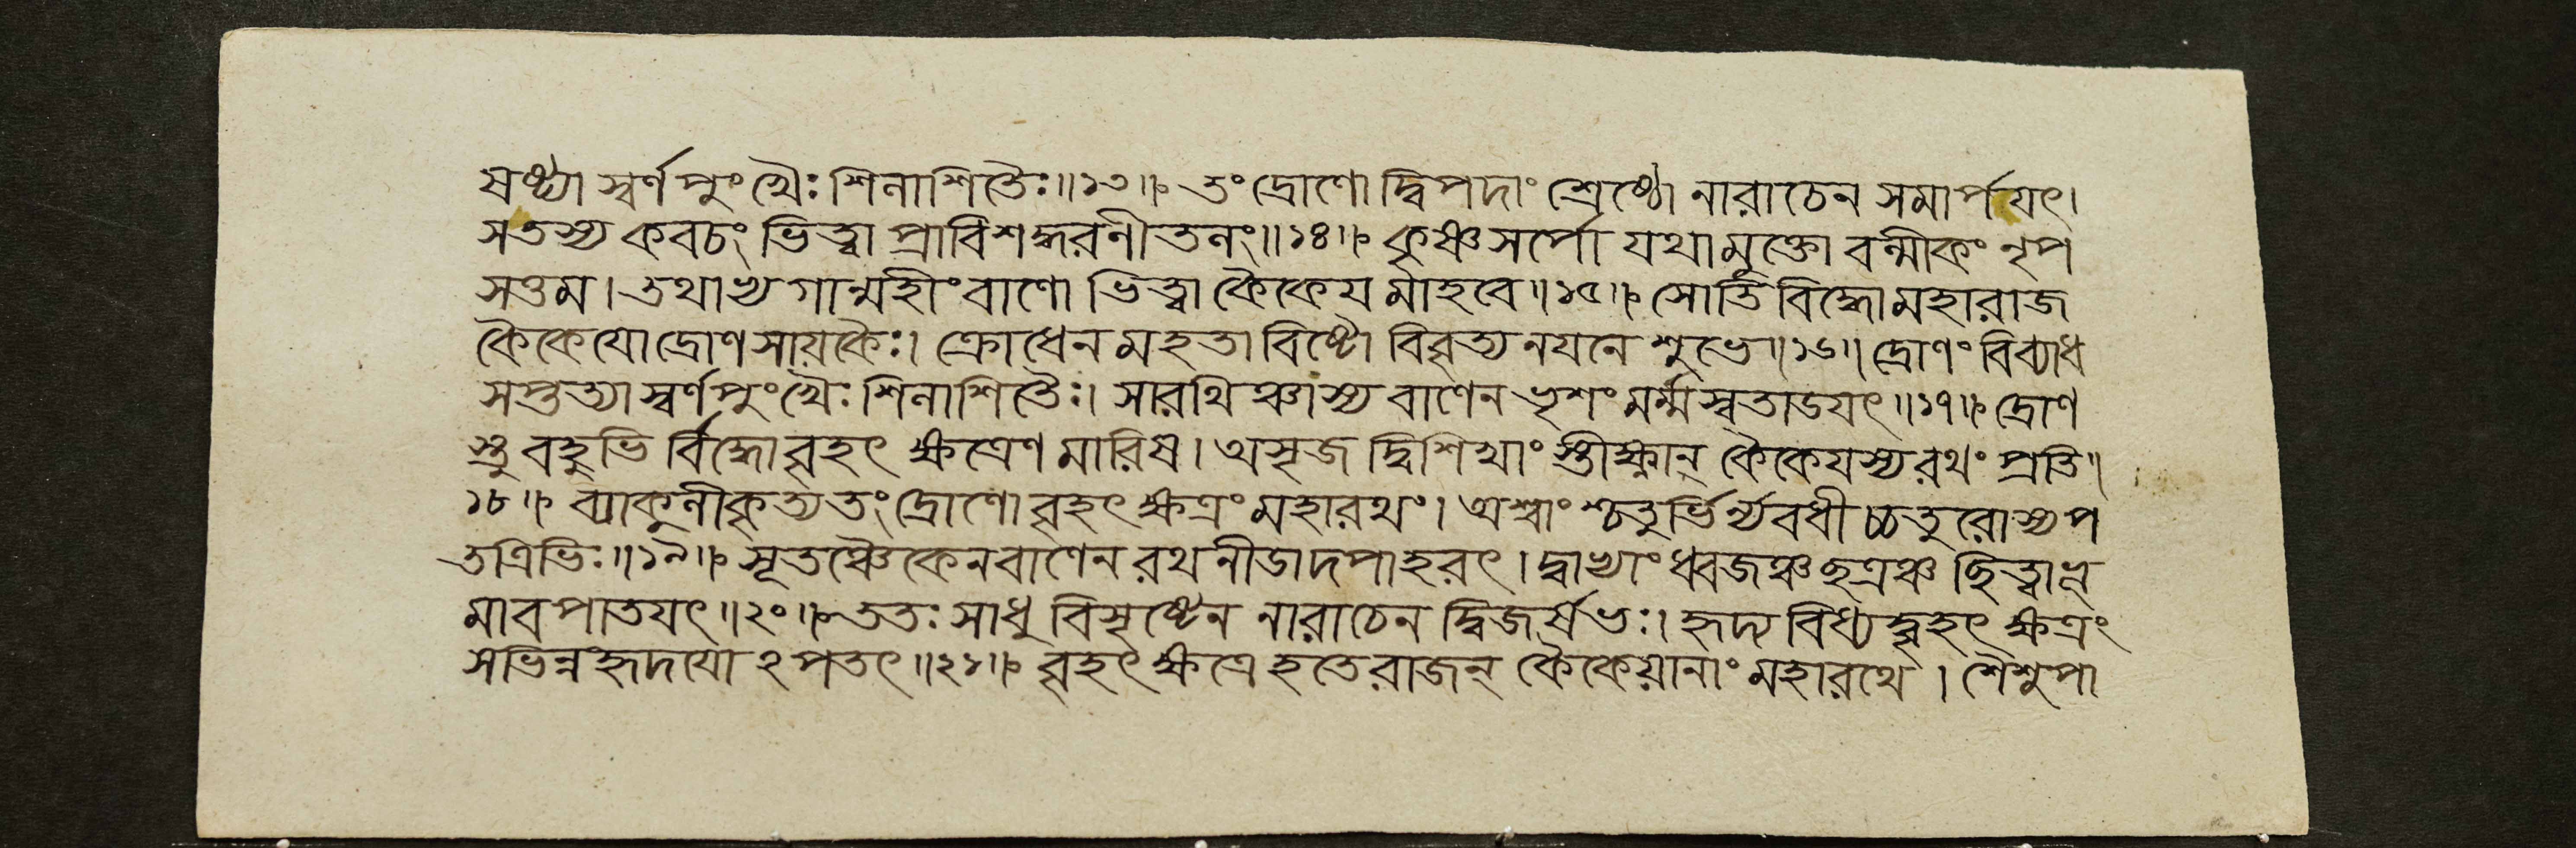 ষষ্ঠ্যা স্বর্ণপুংখৈঃ শিলাশিতৈঃ॥১৩॥ তং দ্রোণো দ্বিপদাং শ্রেষ্ঠো নারাচেন সমার্পযৎ।
স তস্য কবচং ভিত্বা প্রাবিশদ্ধরণীতলং॥১৪॥ কৃষ্ণসর্পো যথা মুক্তো বল্মীকং নৃপ
সত্তম। তথাভ্যগান্মহীং বাণো ভিত্বা কৈকেয মাহবে॥১৫॥ সোতিবিদ্ধো মহারাজ
কৈকেযো দ্রোণসায়কৈঃ। ক্রোধেন মহতাবিষ্টো বিবৃত্য নযনে শুভে॥১৬॥ দ্রোণং বিব্যাধ
সপ্তত্যা স্বর্ণপুংখৈঃ শিলাশিতৈঃ। সারথিঞ্চাস্য বাণেন ভৃশং মর্ম্মস্বতাডযৎ॥১৭॥ দ্রোণ
স্তু বহুভি র্বিদ্ধো বৃহৎক্ষত্রেণ মারিষ। অসৃজ দ্বিশিখাং স্তীক্ষ্ণান্ কৈকেযস্য রথং প্রতি॥
১৮॥ ব্যাকুলীকৃত্য তং দ্রোণো বৃহৎক্ষত্রং মহারথং। অশ্বাং শ্চতুর্ভির্ন্যবধী চ্চতুরোস্য প
তত্রিভিঃ॥১৯॥ সূতঞ্চৈকেন বাণেন রথনীডাদপাহরৎ। দ্বাভ্যাং ধ্বজঞ্চ ছত্রঞ্চ ছিত্বা ভূ
মাবপাতযৎ॥২০॥ ততঃ সাধু বিসৃষ্টেন নারাচেন দ্বিজর্ষভঃ। হৃদ্য বিধ্যদ্বৃহৎক্ষত্রং
স ভিন্নহৃদযো ঽপতৎ॥২১॥ বৃহৎক্ষত্রে হতে রাজন্ কৈকেয়ানাং মহারথে। শৈশুপা